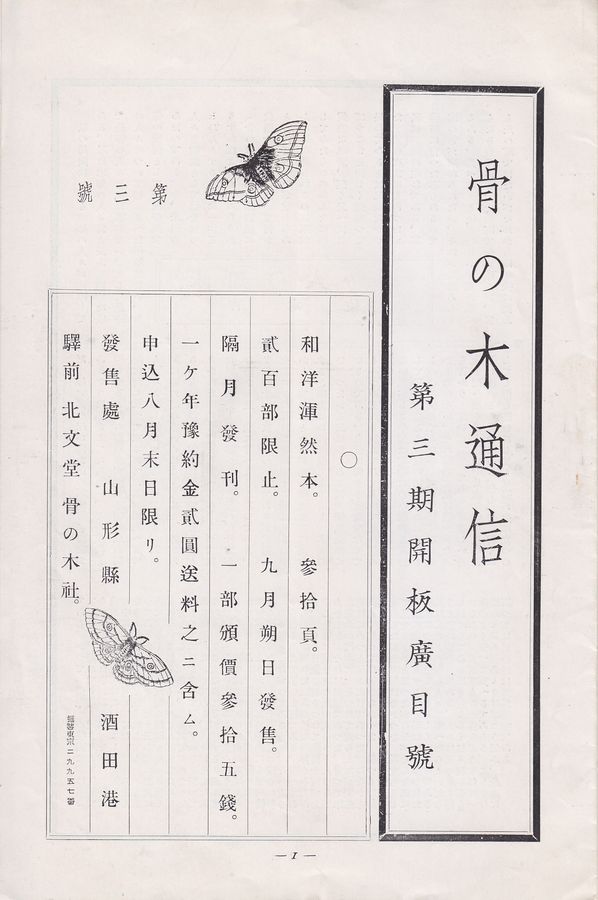 骨の木通信
第三期開板廣目號
第三號
○
和洋渾然本。 參拾頁。
貳百部限止。 九月朔日發售。
隔月發刊。 一部頒價參拾五錢。
一ケ年豫約金貳圓送料之ニ含ム。
申込八月末日限リ。
發售處 山形縣 酒田港
驛前 北文堂 骨の木社。
振替東京二九九五七番
— 1 —